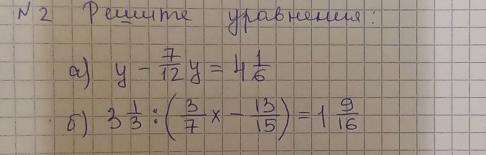 №2 Решите уравнения:
а) y - 7/12 y = 4 1/6
б) 3 1/3 : (3/7 x - 13/15) = 1 9/16